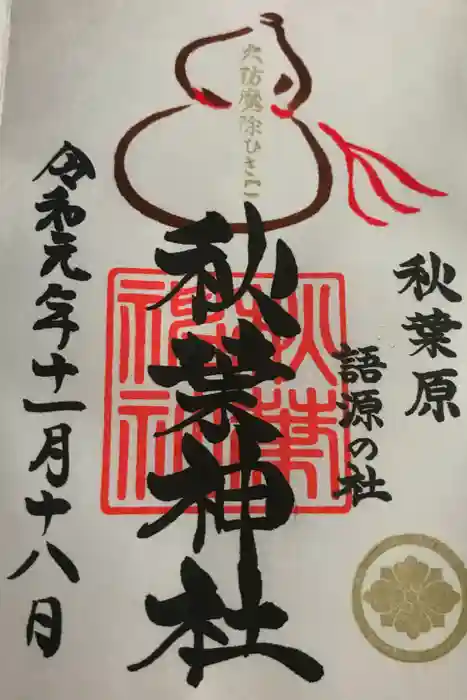 秋葉原
語源の社
火防魔除ひさご
秋葉神社
秋葉神社
令和元年十一月十八日